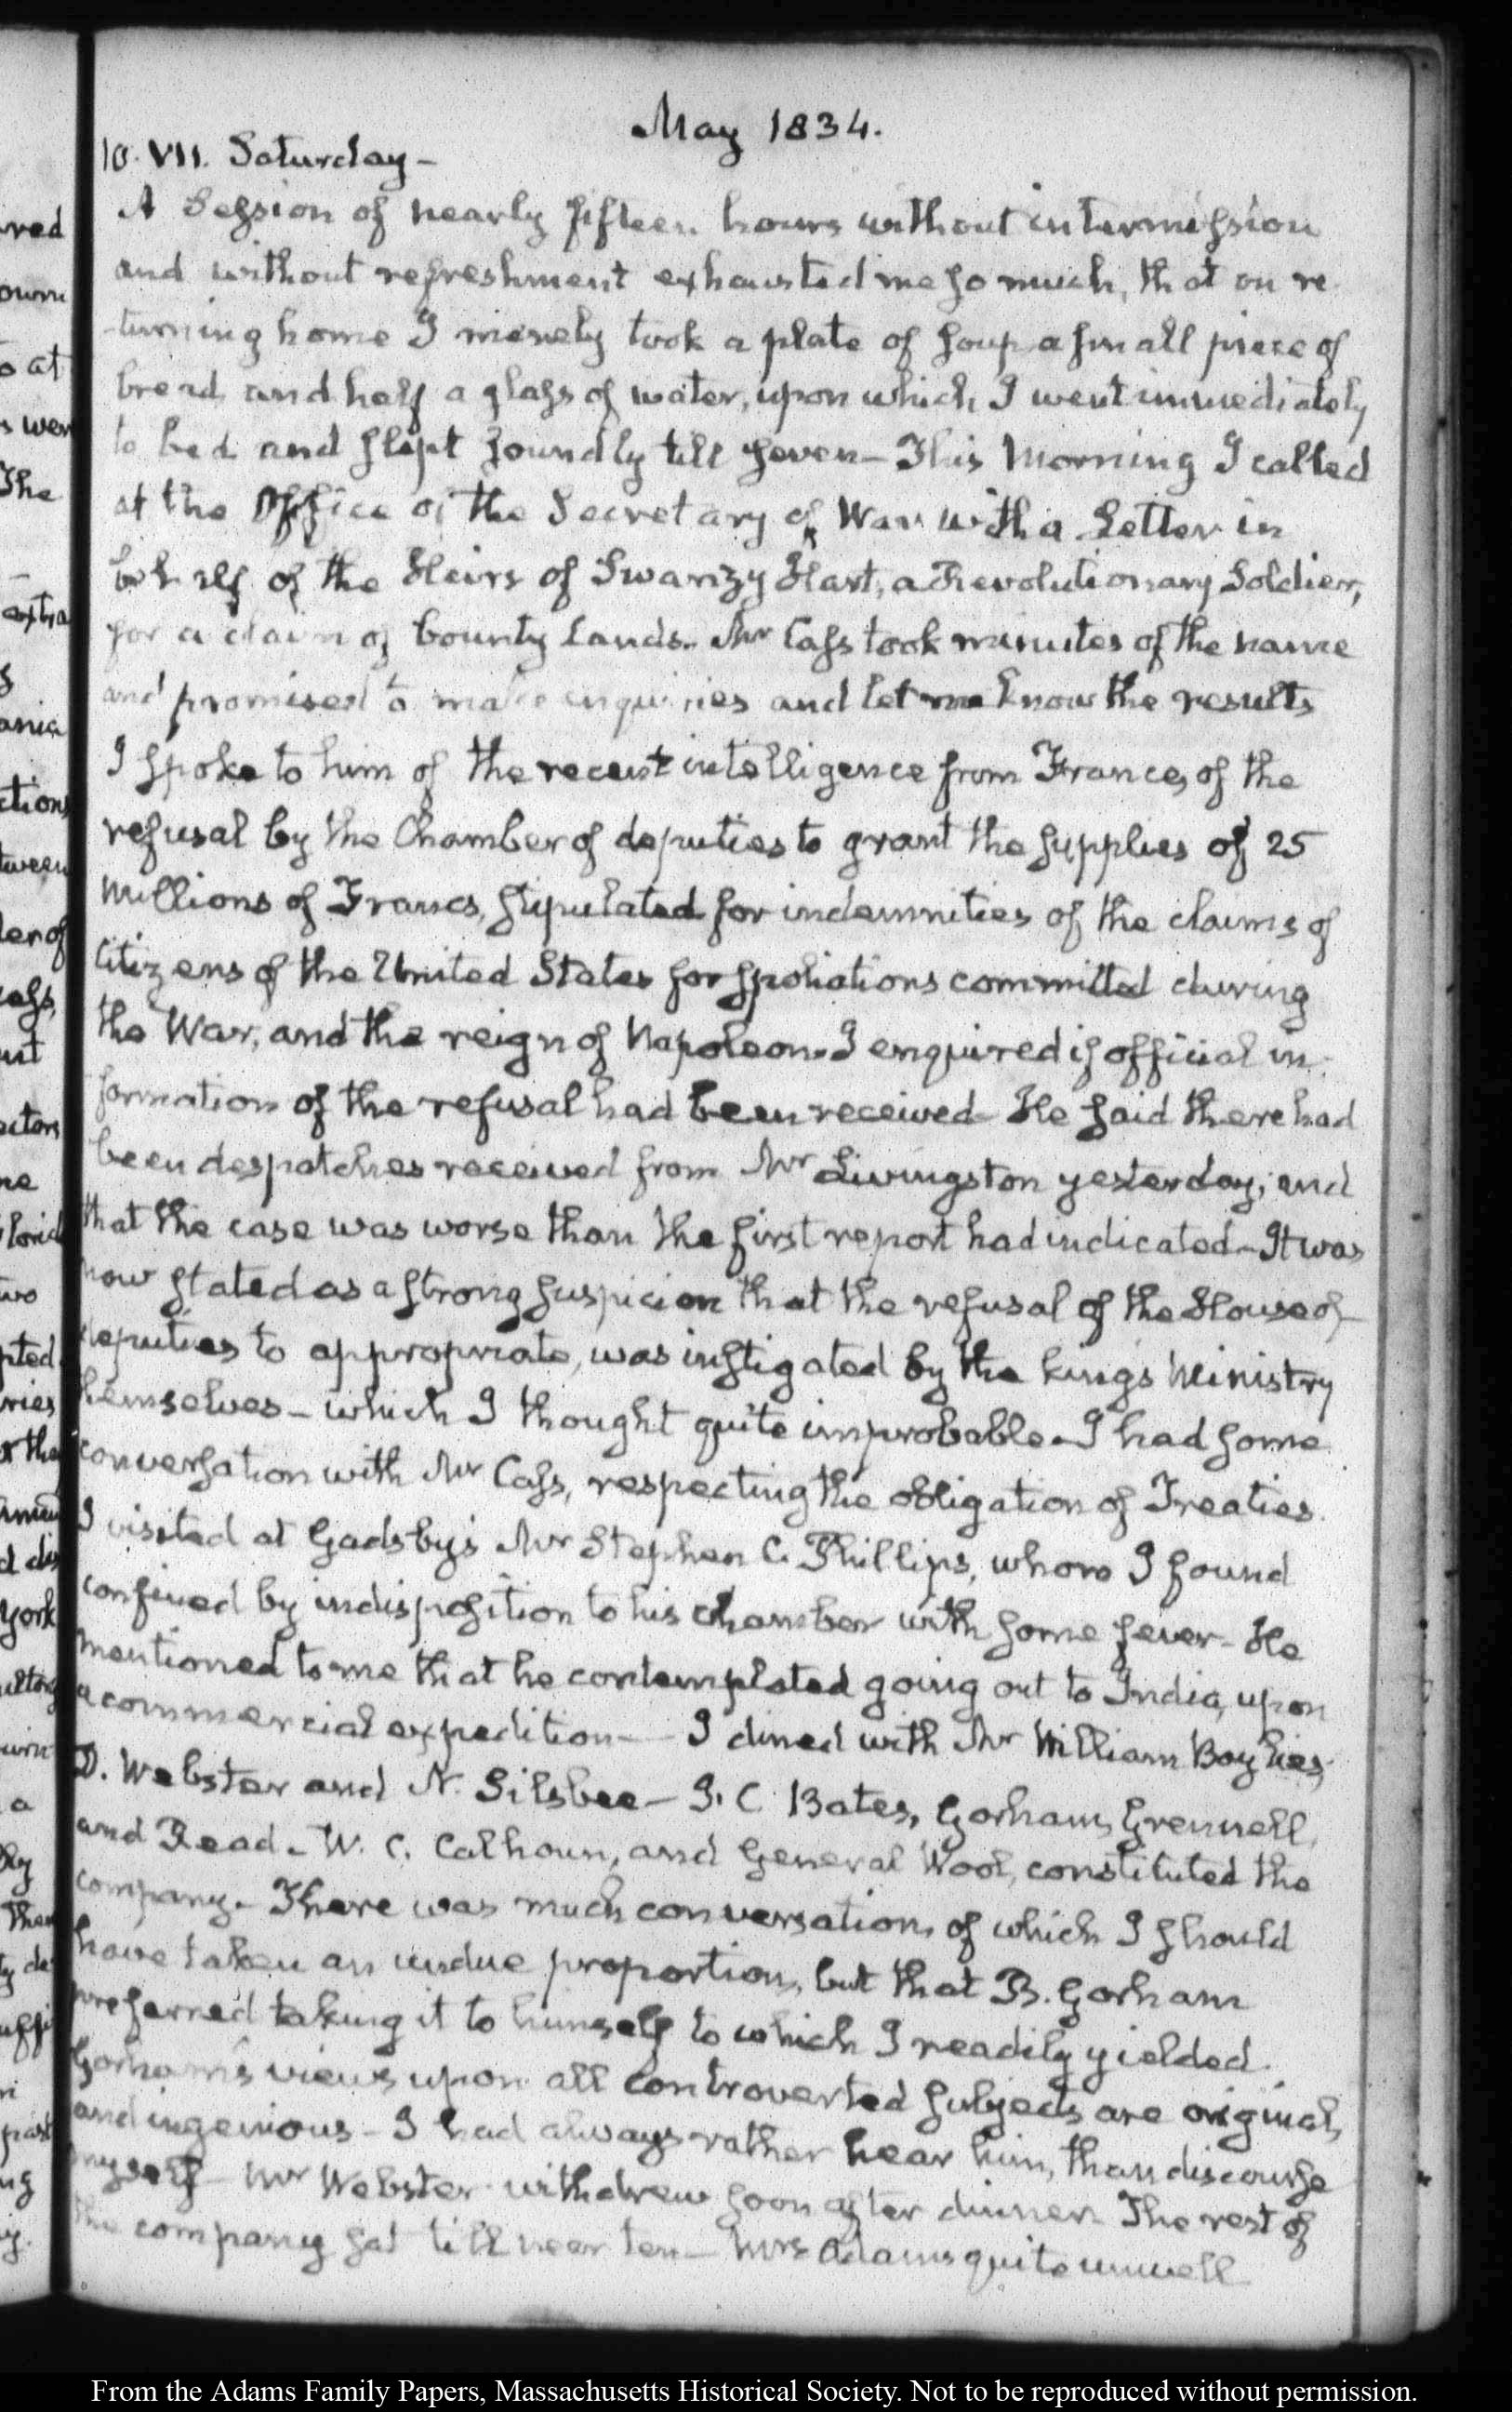 May 1834.
10. VII. Saturday –
A Session of nearly fifteen hours without intermission
and without refreshment exhausted me so much, that on re-
turning home I merely took a plate of soup, a small piece of
bread and half a glass of water, upon which I went immediately
to bed and slept soundly till seven – This Morning I called
at the Office of the Secretary of War with a Letter in
behalf of the Heirs of Swanzy Hart, a Revolutionary Soldier,
for a claim of bounty lands. Mr Cass took minutes of the name
and promised to make enquiries and let me know the results
I spoke to him of the recent intelligence from France, of the
refusal by the Chamber of deputies to grant the supplies of 25
Millions of Francs, stipulated for indemnities of the claims of
Citizens of the United States for spoliations committed during
the War, and the reign of Napoleon. I enquired if official in-
formation of the refusal had been received – He said there had
been despatches received from Mr Livingston yesterday; and
that the case was worse than the first report had indicated – It was
now stated as a strong suspicion that the refusal of the House of
deputies to appropriate, was instigated by the kings Ministry
themselves – which I thought quite improbable. I had some
conversation with Mr Cass, respecting the obligation of Treaties.
I visited at Gadsby's Mr Stephen C. Phillips, whom I found
confined by indisposition to his chamber with some fever – He
mentioned to me that he contemplated going out to India, upon
a commercial expedition – I dined with Mr William Baylies,
D. Webster and N. Silsbee – I. C. Bates, Gorham, Grennell,
and Read – W. C. Calhoun, and General Wool, constituted the
company. There was much conversation, of which I should
have taken an undue proportion, but that B. Gorham
preferred taking it to himself to which I readily yielded.
Gorham's views upon all controverted subjects are original,
and ingenious – I had always rather hear him, than discourse
myself – Mr Webster withdrew soon after dinner. The rest of
the company sat till near ten – Mrs Adams quite unwell
From the Adams Family Papers, Massachusetts Historical Society. Not to be reproduced without permission.